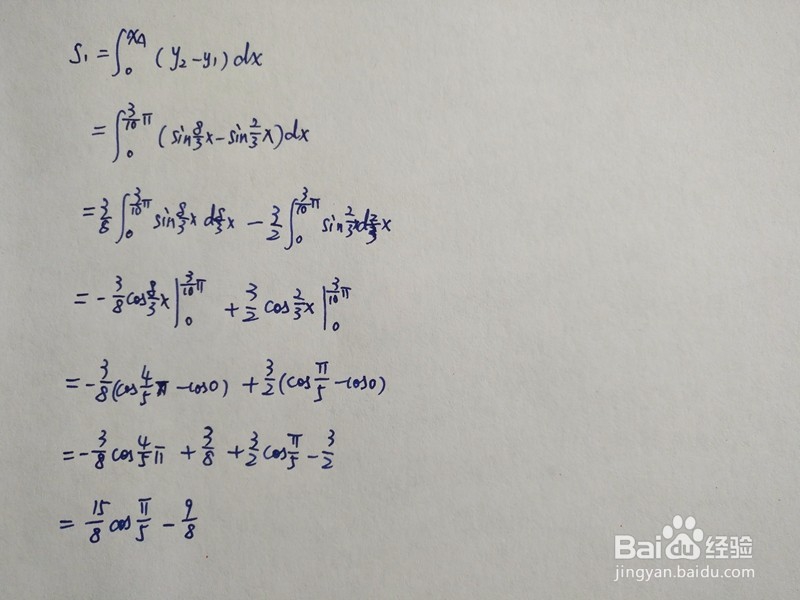 S₁ = ∫₀^{x_A} (y₂ - y₁) dx
= ∫₀^{3/10 π} (sin 8/3 x - sin 2/3 x) dx
= 3/8 ∫₀^{3/10 π} sin 8/3 x d 8/3 x - 3/2 ∫₀^{3/10 π} sin 2/3 x d 2/3 x
= - 3/8 cos 8/3 x |₀^{3/10 π} + 3/2 cos 2/3 x |₀^{3/10 π}
= - 3/8 (cos 4/5 π - cos 0) + 3/2 (cos π/5 - cos 0)
= - 3/8 cos 4/5 π + 3/8 + 3/2 cos π/5 - 3/2
= 15/8 cos π/5 - 9/8
Baidu 经验
jingyan.baidu.com